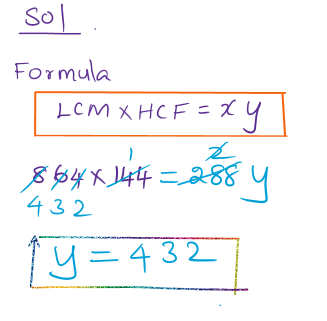 Sol
Formula
LCM × HCF = x y
1 2
864 × 144 = 288 y
432
y = 432